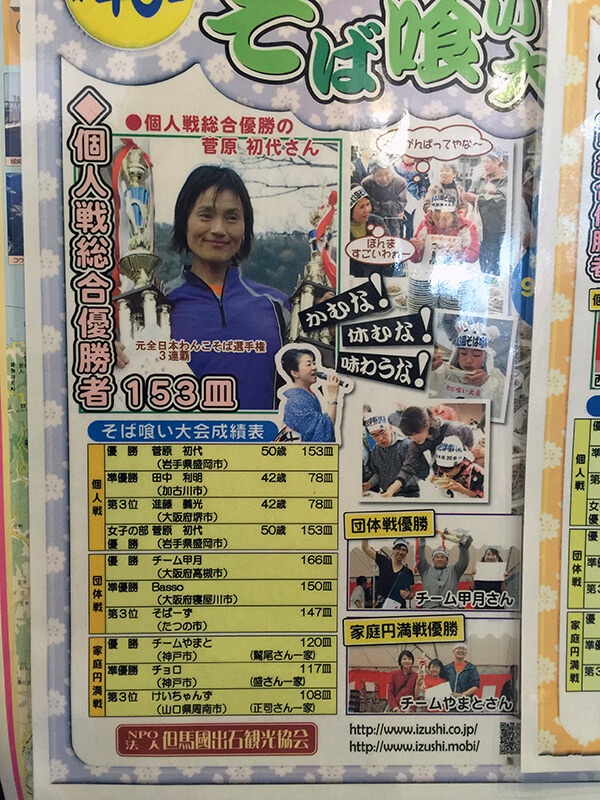 そば喰い大
◆個人戦総合優勝者 153皿
●個人戦総合優勝の
菅原 初代さん
元全日本わんこそば選手権
3連覇
がんばってやな～
ほんま
すごいわぁー
かむな!
休むな!
味わうな!
そば喰い大会成績表
個人戦
優勝 菅原 初代 50歳 153皿
(岩手県盛岡市)
準優勝 田中 利明 42歳 78皿
(加古川市)
第3位 進藤 義光 42歳 78皿
(大阪府堺市)
女子の部 菅原 初代 50歳 153皿
優勝 (岩手県盛岡市)
団体戦
優勝 チーム甲月 166皿
(大阪府高槻市)
準優勝 Basso 150皿
(大阪府寝屋川市)
第3位 そばーず 147皿
(たつの市)
家庭円満戦
優勝 チームやまと 120皿
(神戸市) (鷲尾さん一家)
準優勝 チョロ 117皿
(神戸市) (盛さん一家)
第3位 けいちゃんず 108皿
(山口県周南市) (正司さん一家)
団体戦優勝
チーム甲月さん
家庭円満戦優勝
チームやまとさん
NPO法人 但馬國出石観光協会
http://www.izushi.co.jp/
http://www.izushi.mobi/